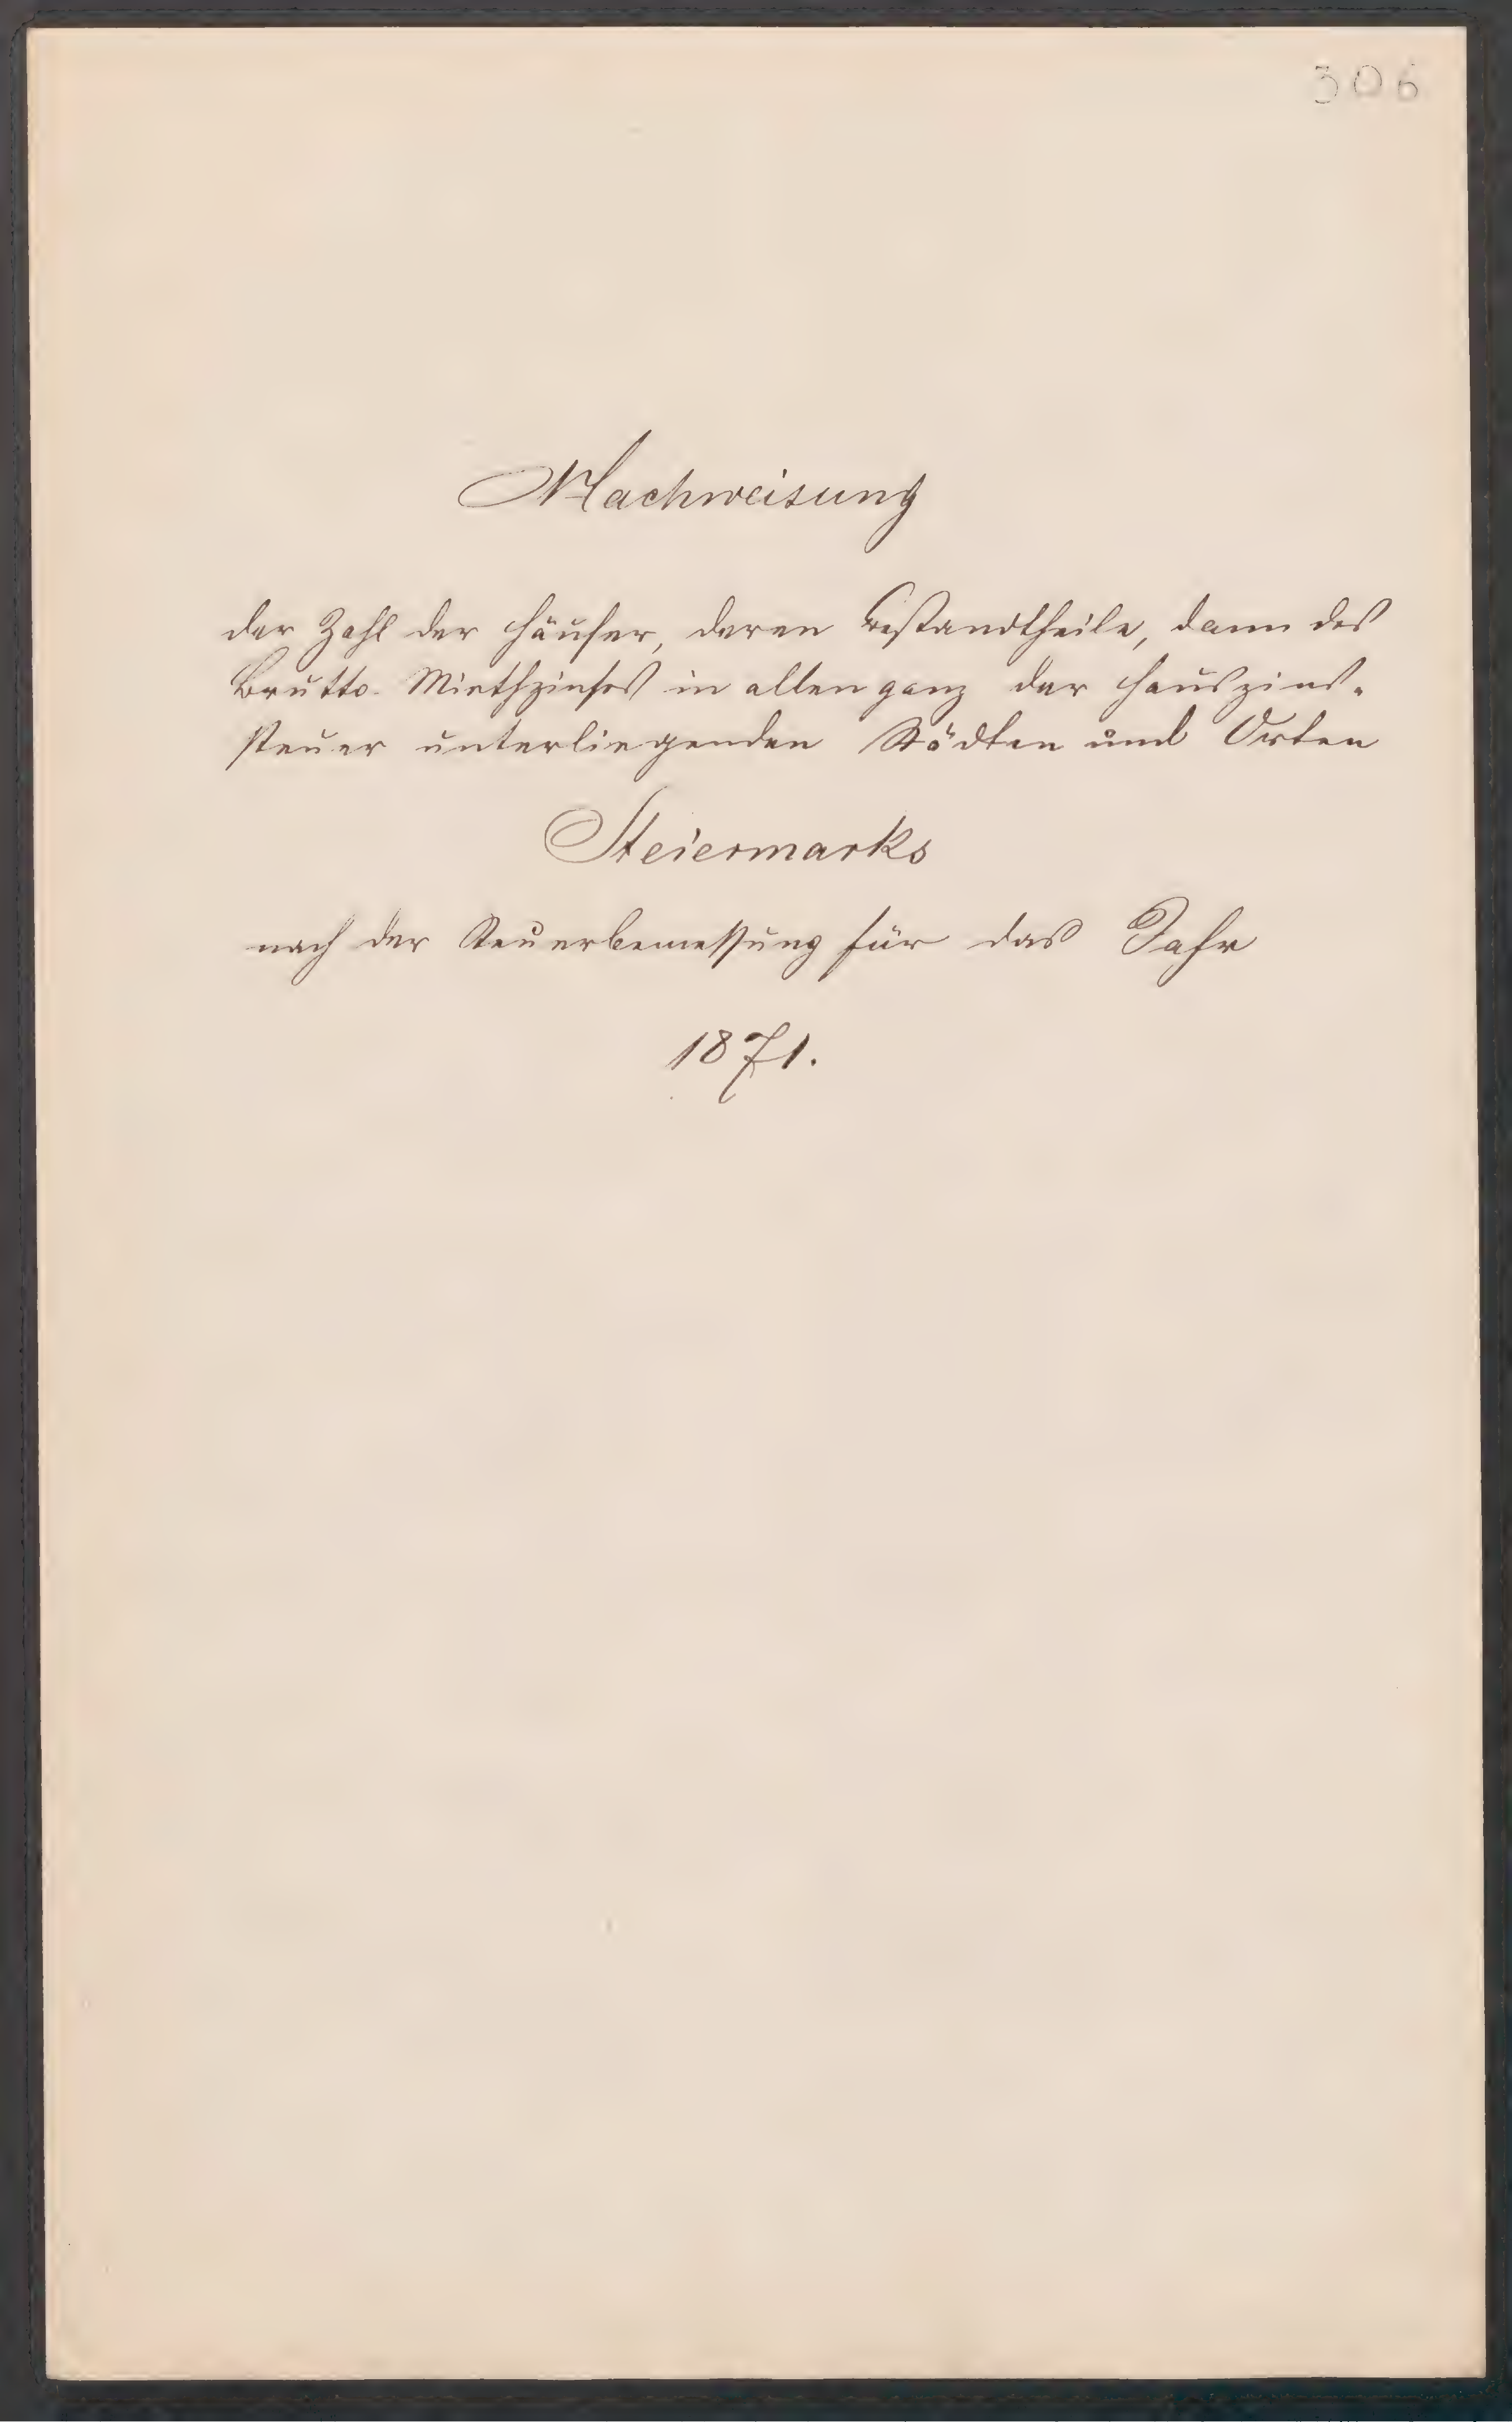 306
Nachweisung
der Zahl der Häuser, deren Bestandtheile, dann des
Brutto-Miethzinses in allen ganz der Hauszins-
steuer unterliegenden Städten und Orten
Steiermarks
nach der Steuerbemessung für das Jahr
1871.